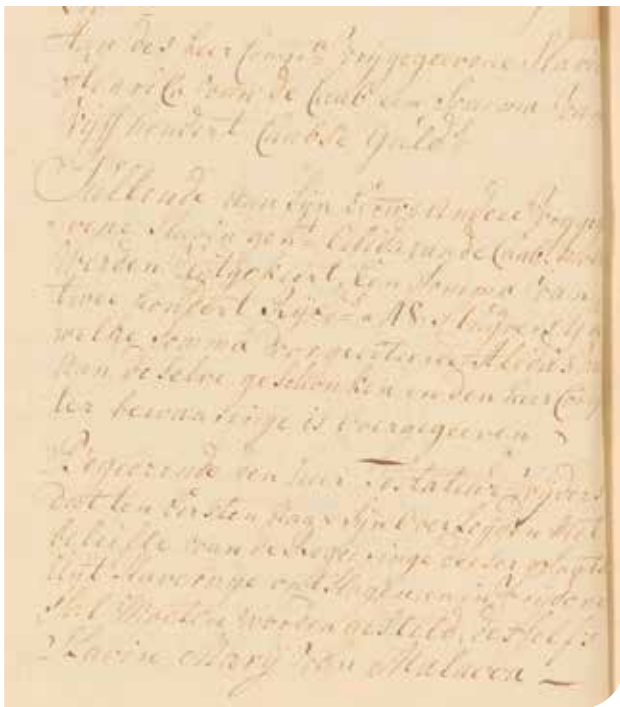 Aan des heer Comp:ts vrijgegeevene Slavin
van de Caab een Somma van
Vijff hondert Caabse Guld:s
Zullende aan Sijn Eeuws andere vrijge
vene Slavin gen:t van de Caab
werden uijtgekeert, Een Somma van
twee hondert Rijxd:s a 48 stuijvers
welke Somma voorgeciteerde
aan deselve geschonken en den heer
ter bewaaringe is overgegeeven
Begeerende den heer Testateur wijders
dat ten Eersten naar Sijn Overleijden met
beliefte van de Regeeringe deeser plaatse
uijt Slavernije ontslagen en in Vrijdom
Sal Moeten worden gesteld, des selfs
Slavin van Malacca